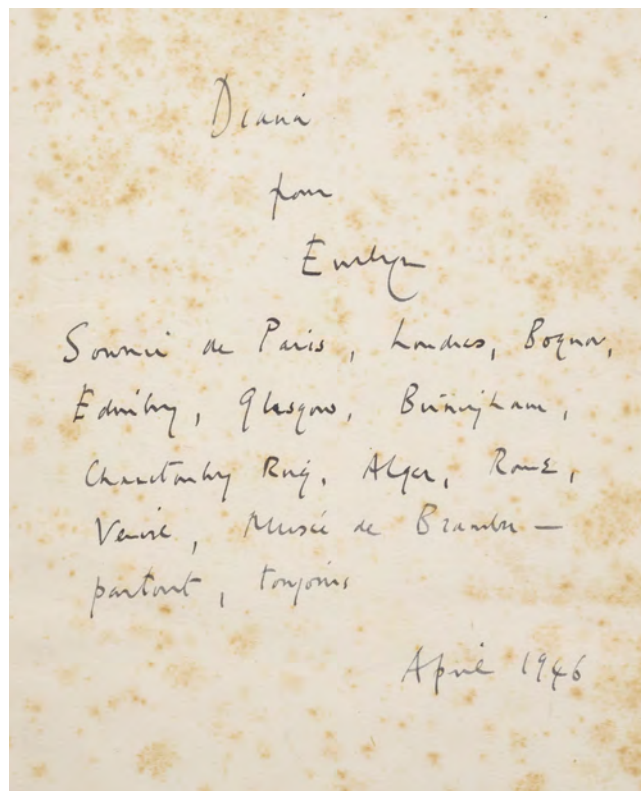 Diana
pour
Evelyn
Souvenir de Paris, Londres, Bognor,
Edinburg, Glasgow, Birmingham,
Chanctonbury Ring, Alger, Rome,
Venise, Musée de Bramber —
partout, toujours
April 1946